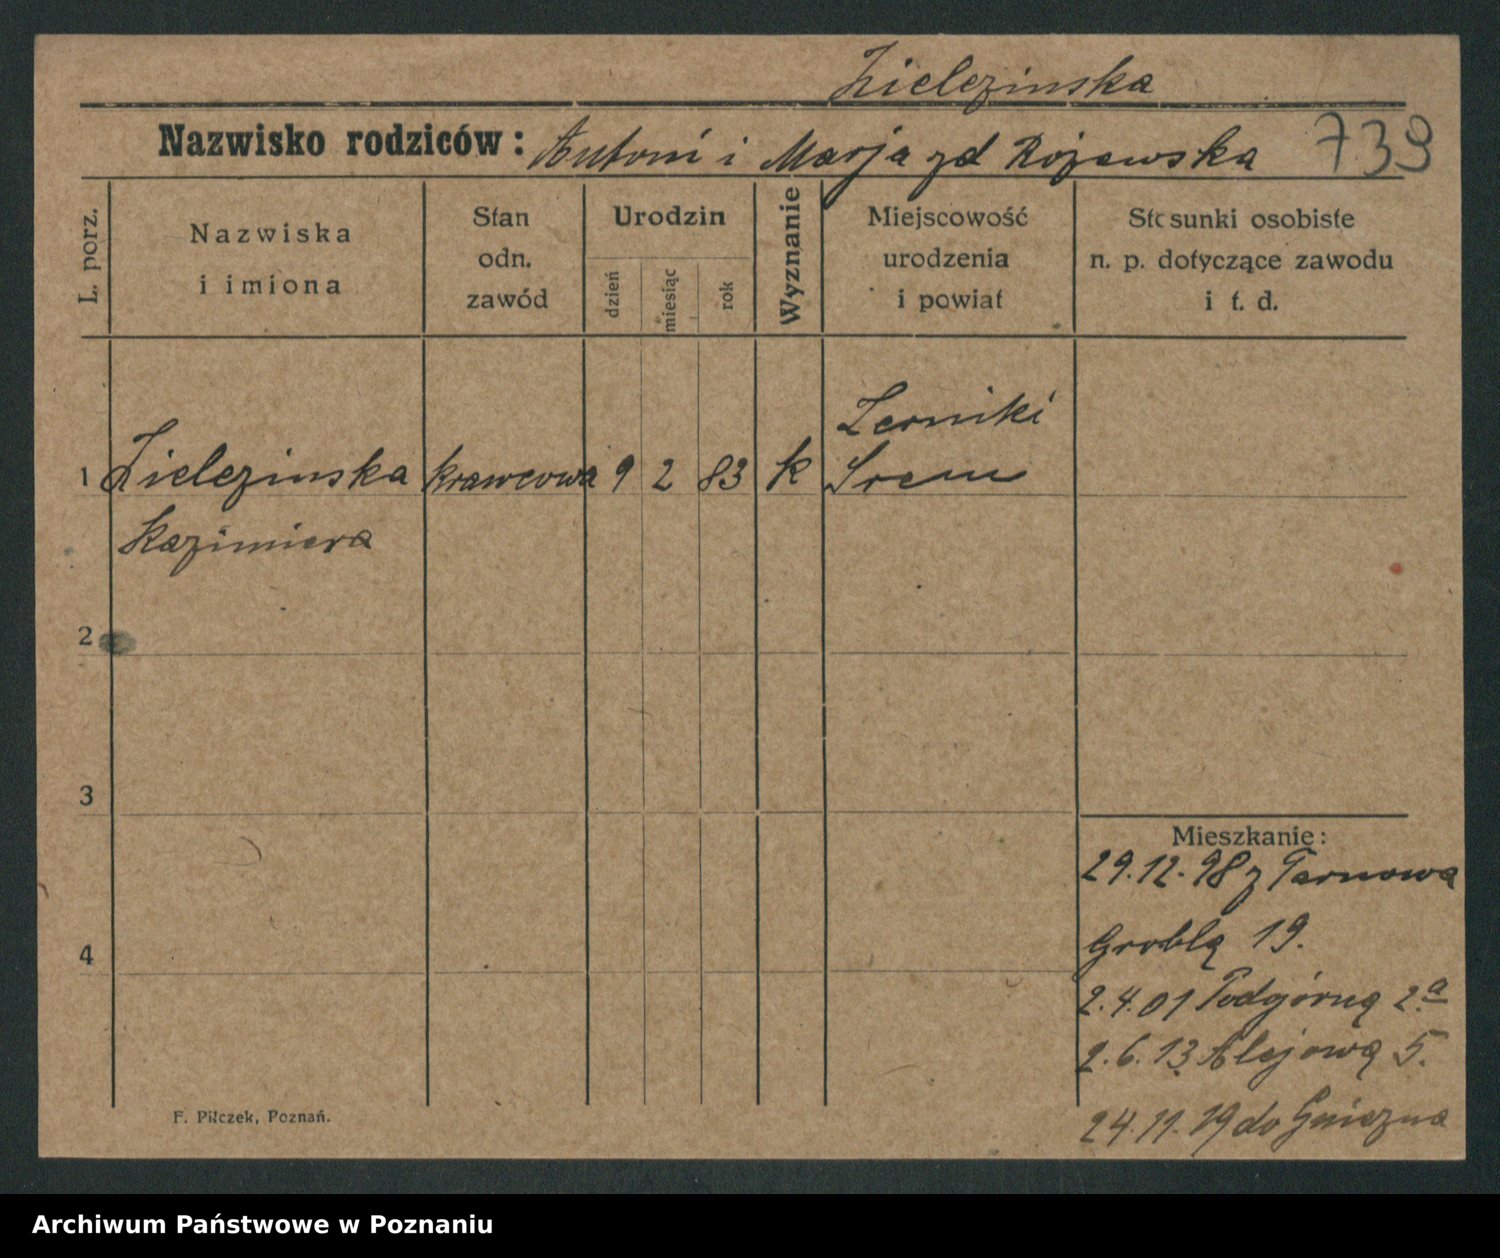 Zielezinska
Nazwisko rodziców: Antoni i Marja zd Rozewska 739
L. porz.
Nazwiska
i imiona
Stan
odn.
zawód
Urodzin
dzień
miesiąc
rok
Wyznanie
Miejscowość
urodzenia
i powiat
Stosunki osobiste
n. p. dotyczące zawodu
i t. d.
Zerniki
1 Zielezinska krawcowa 9 2 83 k Srem
Kazimiera
2
3
Mieszkanie:
29.12.98 z Tarnowa
Groblą 19.
4
2.4.01 Podgórną 2a
2.6.13 Alejową 5.
24.11.19 do Gniezna
F. Pilczek, Poznań.
Archiwum Państwowe w Poznaniu